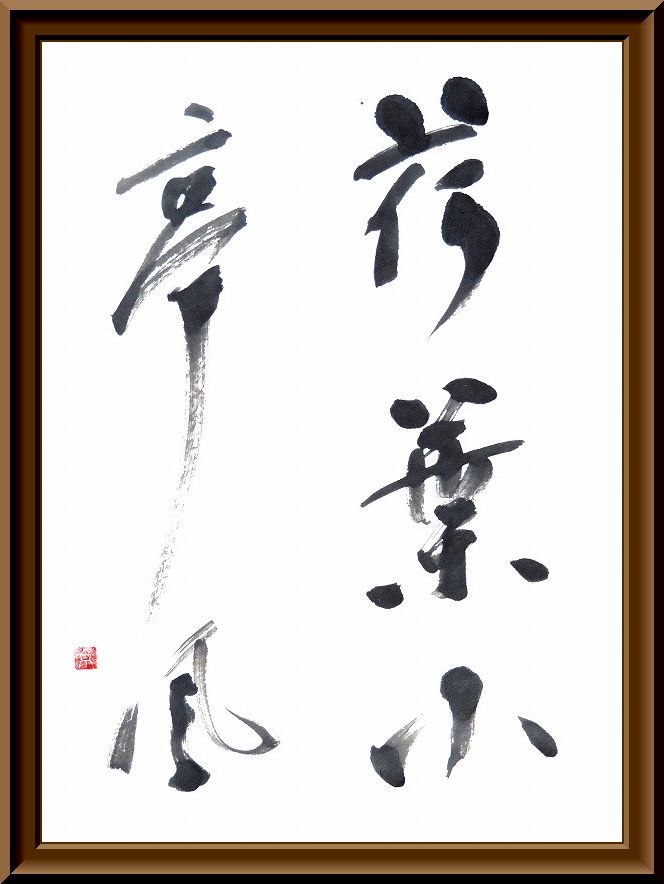 荷葉小
亭風